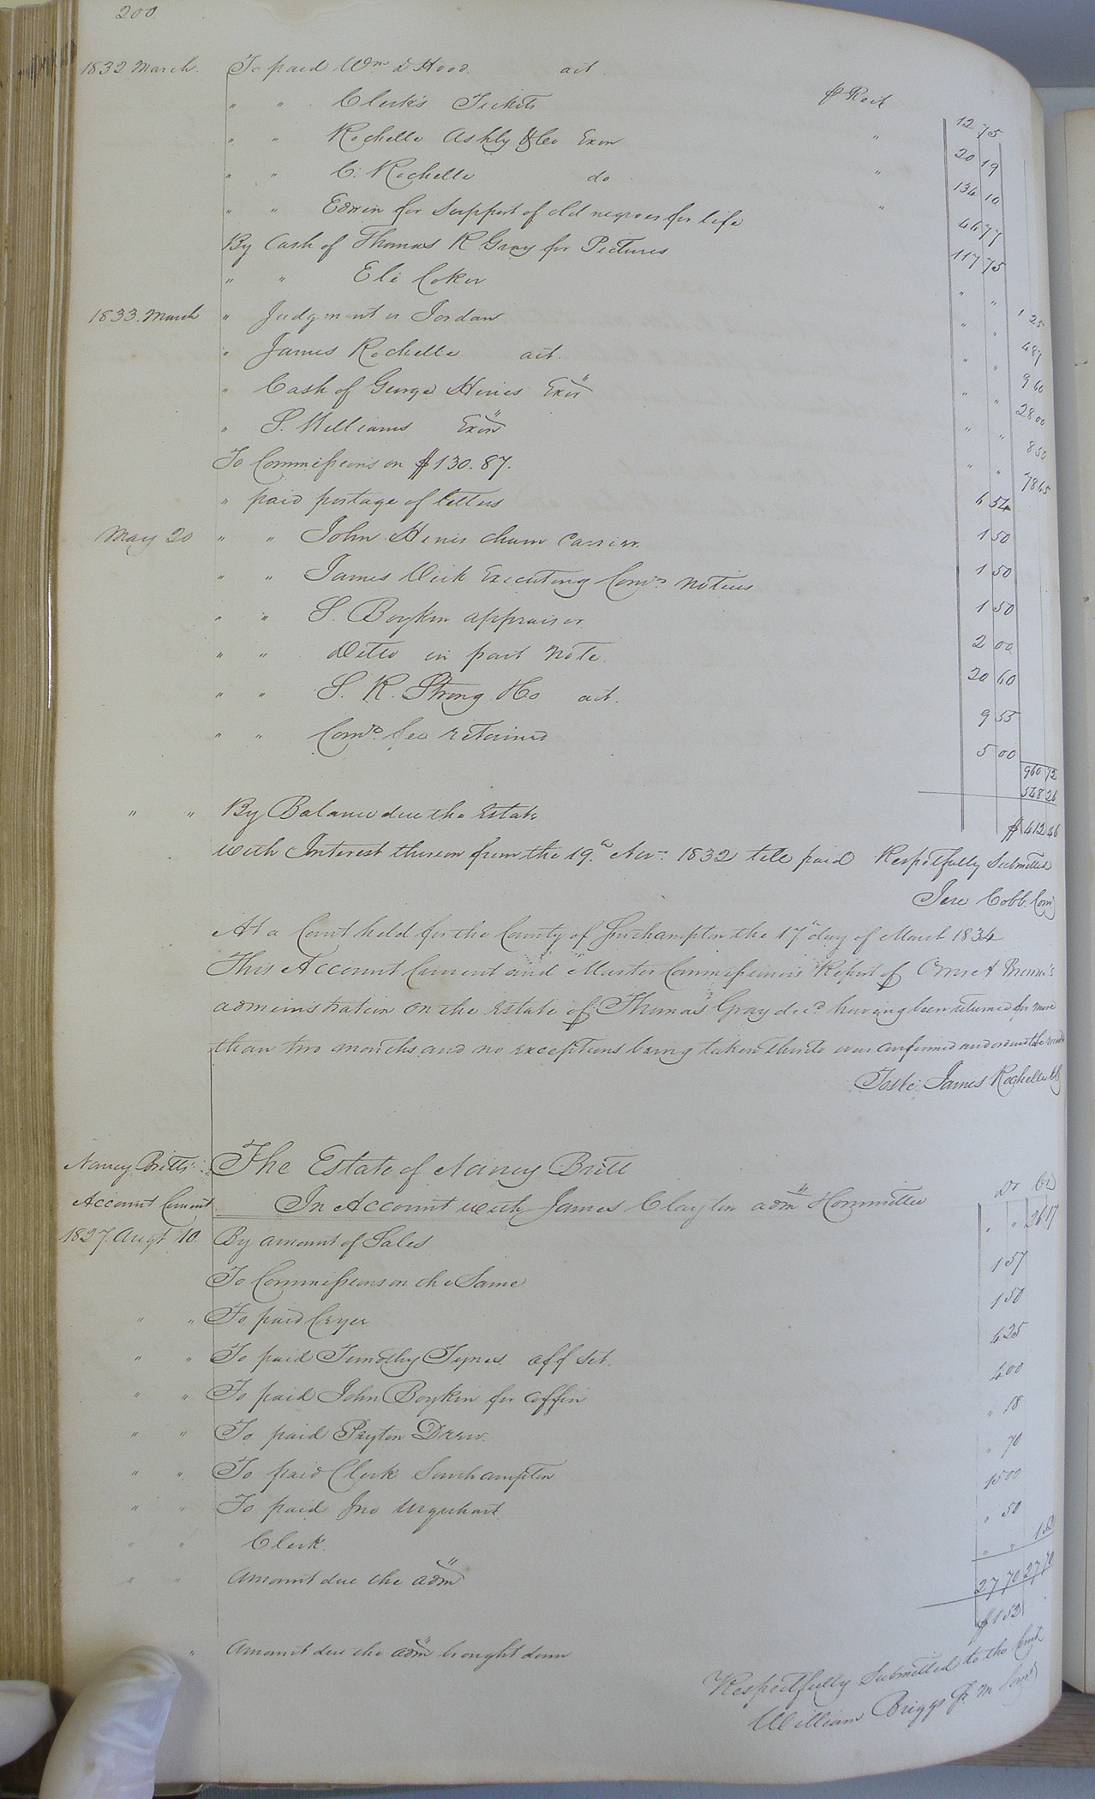 200
1832 March. To paid Wm D Hood. act. pr Rect 12 75
" " Clerk's Tickets " 20 19
" " Rochelle Ashly & Co Exon " 134 10
" " C. Rochelle do " 46 77
" " Edwin for Support of old negroes for life 117 75
By Cash of Thomas R Gray for Pictures " " 1 25
" " Eli Coker " " 4 87
1833. March " Judgment vs Jordan " " 9 60
" James Rochelle act. " " 28 00
" Cash of George Hines Exor " " 8 50
" S. Williams Exon " " 78 65
To Commissions on $130.87. 6 54
" paid postage of letters 1 50
May 20 " " John Hines chain Carrier. 1 50
" " James Dick Executing Comrs. notices 1 50
" " S. Boykin appraiser 2 00
" " Ditto in part Note. 20 60
" " S. K. Strong &Co act. 9 55
" " Comrs. fee retained 5 00
960 72
548 26
" " By Balance due the Estate $ 412 46
with Interest thereon from the 19th Nov. 1832 till paid Respectfully Submitted
Jere Cobb. Comr
At a Court held for the County of Southampton the 17th day of March 1834
This Account Current and Master Commissioners Report of Orris A Browne's
administration on the estate of Thomas Gray decd. having been returned for more
than two months and no exceptions being taken thereto was confirmed and ordered to be recorded
Teste James Rochelle clk
Nancy Britts The Estate of Nancy Britt
Account Current In Account with James Clayton admr &Committee Dr Cr
1827 Augt 10. By amount of Sales " " 26 17
To Commissions on the Same 1 57
" " To paid Cryer 1 50
" " To paid Timothy Tynes off set. 4 25
" " To paid John Boykin for coffin 4 00
" " To paid Peyton Drew. " 18
" " To paid Clerk Southampton " 70
" " To paid Jno Urquhart 15 00
" " Clerk. " 50
" " Amount due the admr " " 1 53
27 70 27 70
" Amount due the admr brought down $ 1 53
Respectfully Submitted to the Court
William Briggs Jr. M Comr